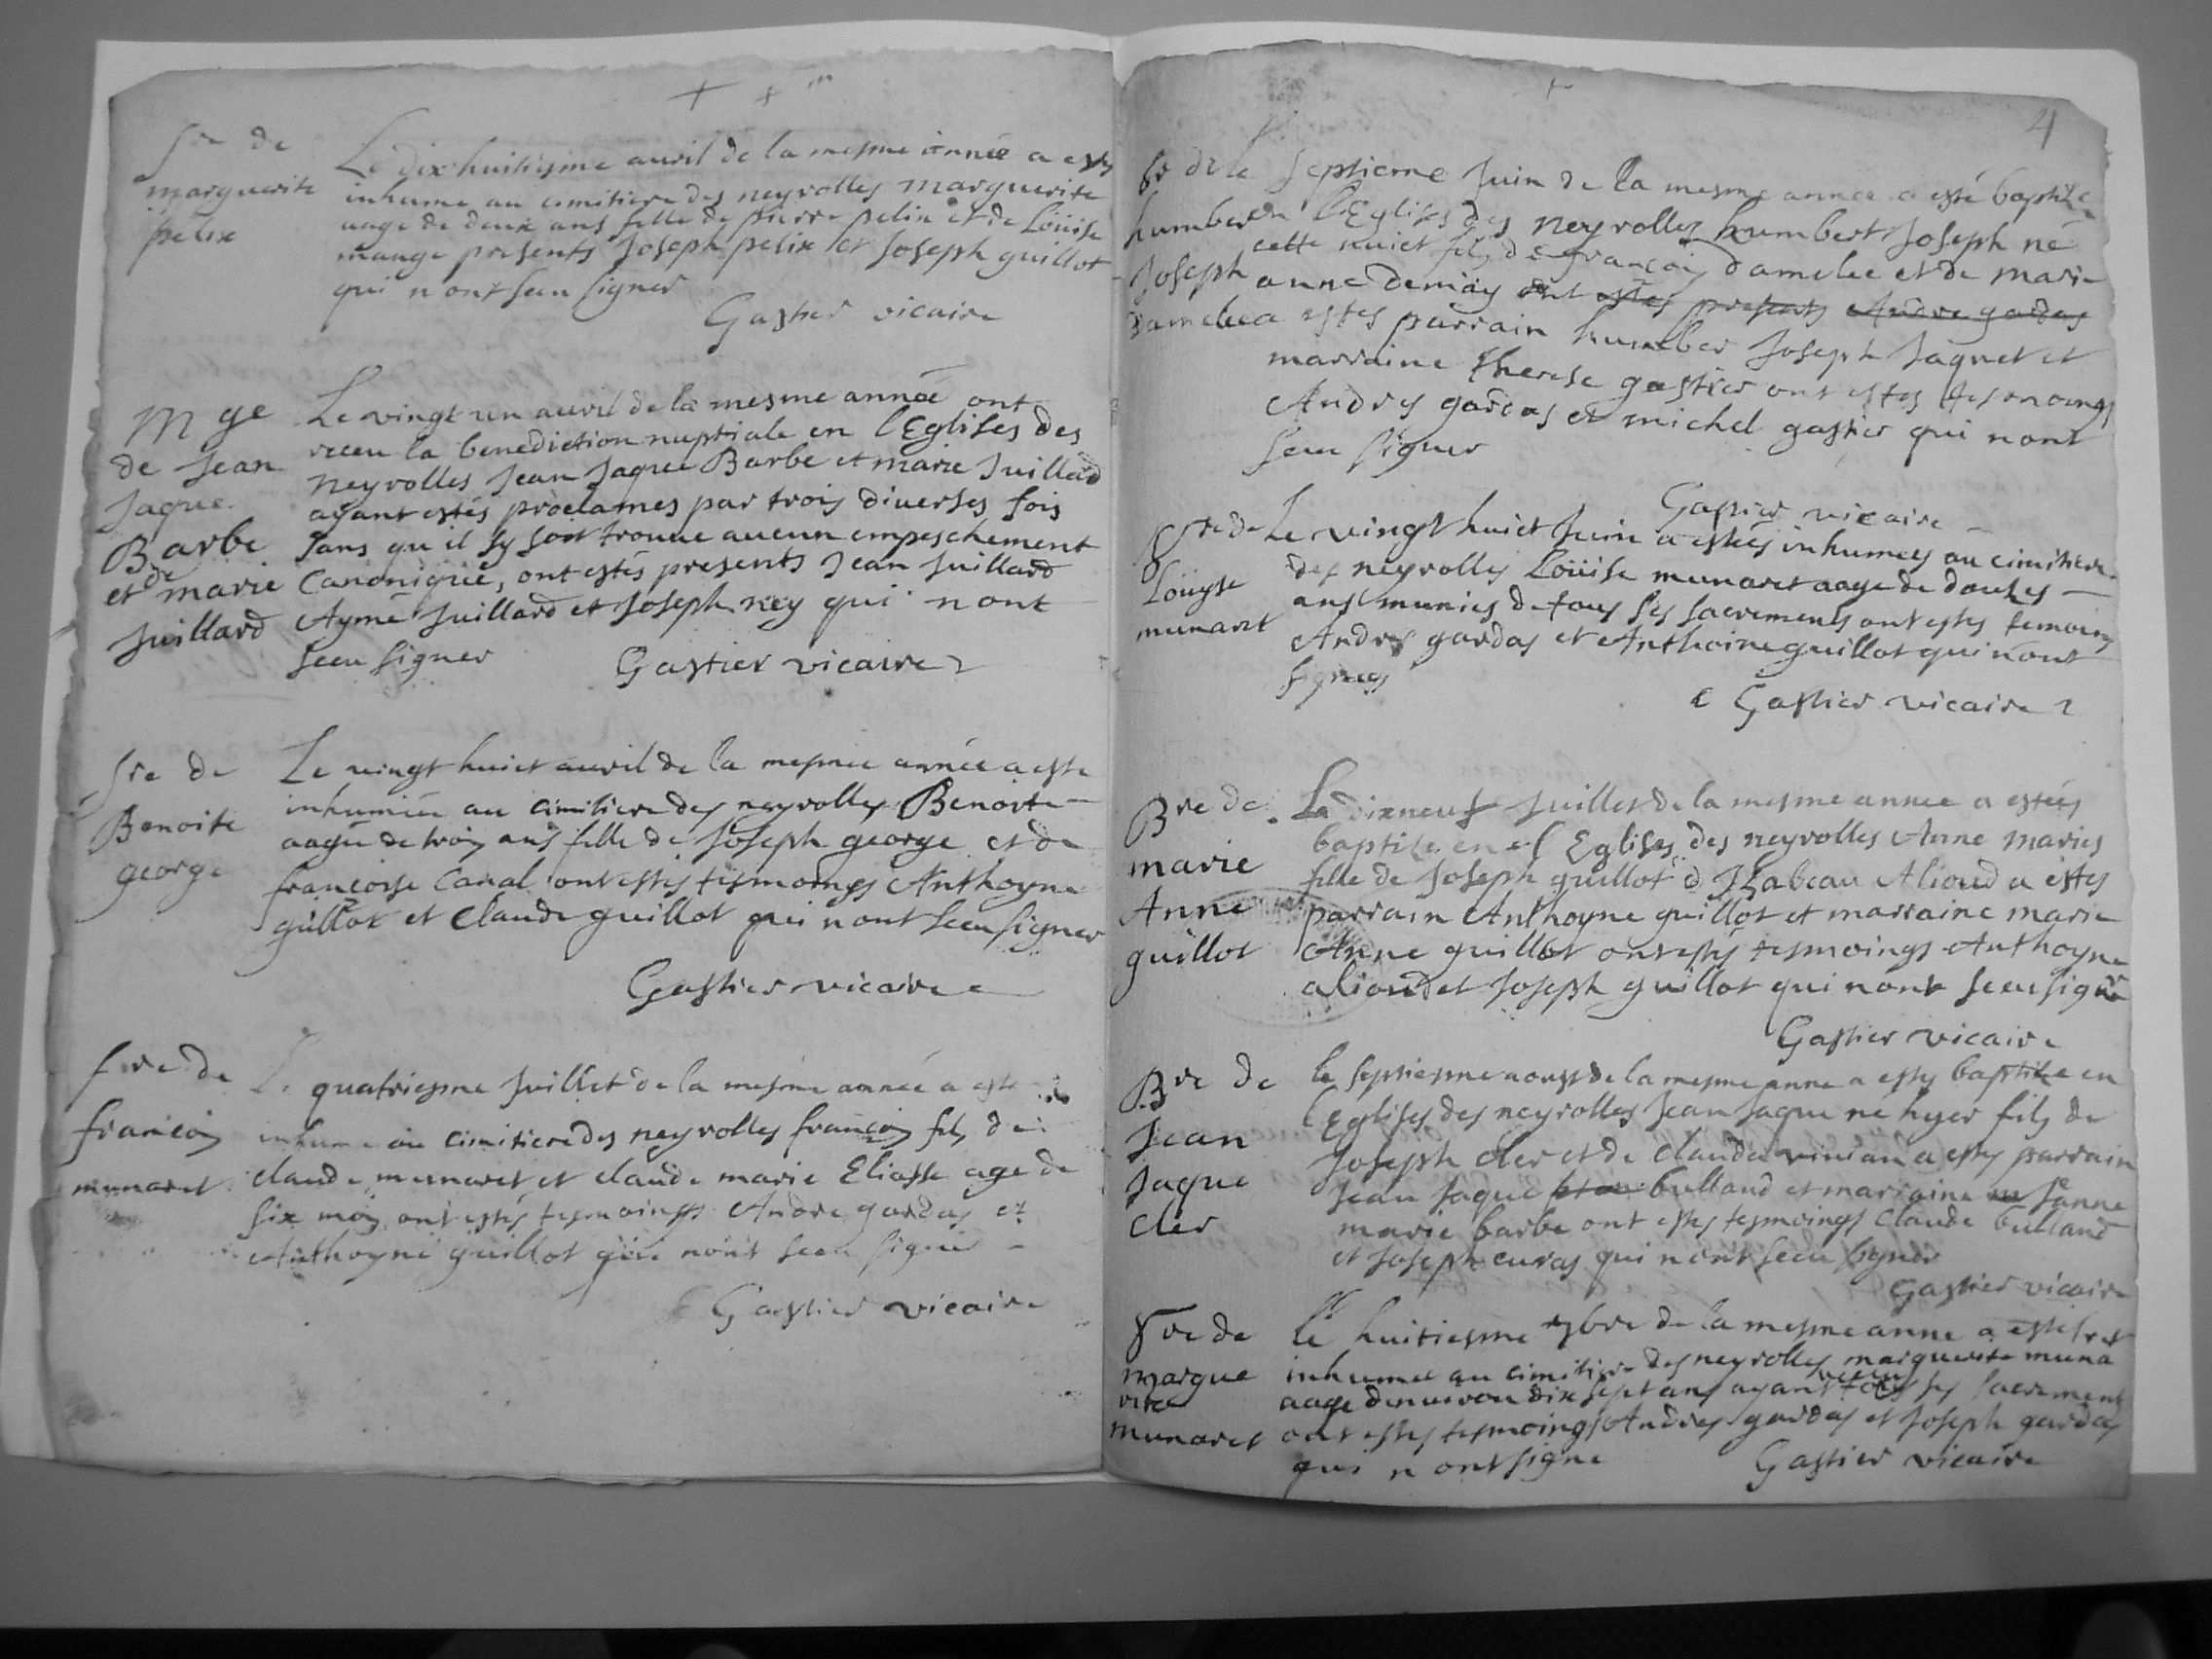 Sre de
marguerite
pelix
Le dix huitiesme auril de la mesme année a estes
inhume au cimitiere des neyrolles marguerite
aage de deux ans fille de pierre pelix et de Loüise
mange presents Joseph pelix et Joseph guillot
qui n ont sceu signer
Gastier vicaire
Mge
de Jean
Jaque
Barbe
et de marie
Juillard
Le vingt un auril de la mesme année ont
receu la benediction nuptiale en l Eglises des
neyrolles Jean Jaque Barbe et marie Juillard
ayant estés proclames par trois diuerses fois
sans qu il sy soit trouue aucun empeschement
Canonique, ont estés presents Jean Juillard
Aymé Juillard et Joseph ney qui n ont
sceu signer
Gastier vicaire
Sre de
Benoite
george
Le vingt huict auril de la mesme année a este
inhumée au cimitiere des neyrolles Benoite
aagée de trois ans fille de Joseph george et de
françoise Canal ont estes tesmoings Anthoyne
guillot et Claude guillot qui n ont sceu signer
Gastier vicaire
Sre de
françois
munaret
Le quatriesme Juillet de la mesme année a este
inhume au cimitiere des neyrolles françois fils de
claude munaret et claude marie Eliasse age de
six mois ont estés tesmoings Andre gardas et
Anthoyne guillot qui nont sceu signer
Gastier vicaire
4
Br de
humber
Joseph
damelee
le septieme Juin de la mesme annee a esté baptize
en l Eglises des neyrolles humbert Joseph né
cette nuict fils de françois damelee et de marie
anne demias ont estes presents Andre gardas
a estes parrain humber Joseph Jaquet et
marraine Therese gastier ont estes tesmoings
Andres gardas et michel gastier qui nont
sceu signer
Gastier vicaire
Sre de
Loüyse
munaret
Le vingt huict Juin a estées inhumées au cimitiere
des neyrolles Loüise munaret aage de douzes
ans munies de tous ses sacrements ont estes temoins
Andres gardas et Anthoine guillot qui n ont
signes
Gastier vicaire
Bre de
marie
Anne
guillot
Le dixneuf Juillet de la mesme annee a estées
baptize en l Eglises des neyrolles Anne maries
fille de Joseph guillot d Izabeau Alioud a estes
parrain Anthoyne guillot et marraine marie
Anne guillot ont estes tesmoings Anthoyne
alioud et Joseph guillot qui nont sceu signer
Gastier vicaire
Bre de
Jean
Jaque
Cler
le septiesme aoust de la mesme anne a estes baptize en
l Eglises des neyrolles Jean Jaque ne hyer fils de
Joseph cler et de Clauda viuian a estes parrain
Jean Jaque bulland et marraine Janne
marie barbe ont estes tesmoings Claude bulland
et Joseph curas qui n ont sceu signer
Gastier vicaire
Sre de
margue
rite
munaret
le huitiesme 7bre de la mesme anne a esté
inhumee au cimitiere des neyrolles marguerite munaret
aage denuiron dix sept ans ayant receu tous ses sacrement
ont estes tesmoings Andres gardas et Joseph gardas
qui n ont signe
Gastier vicaire